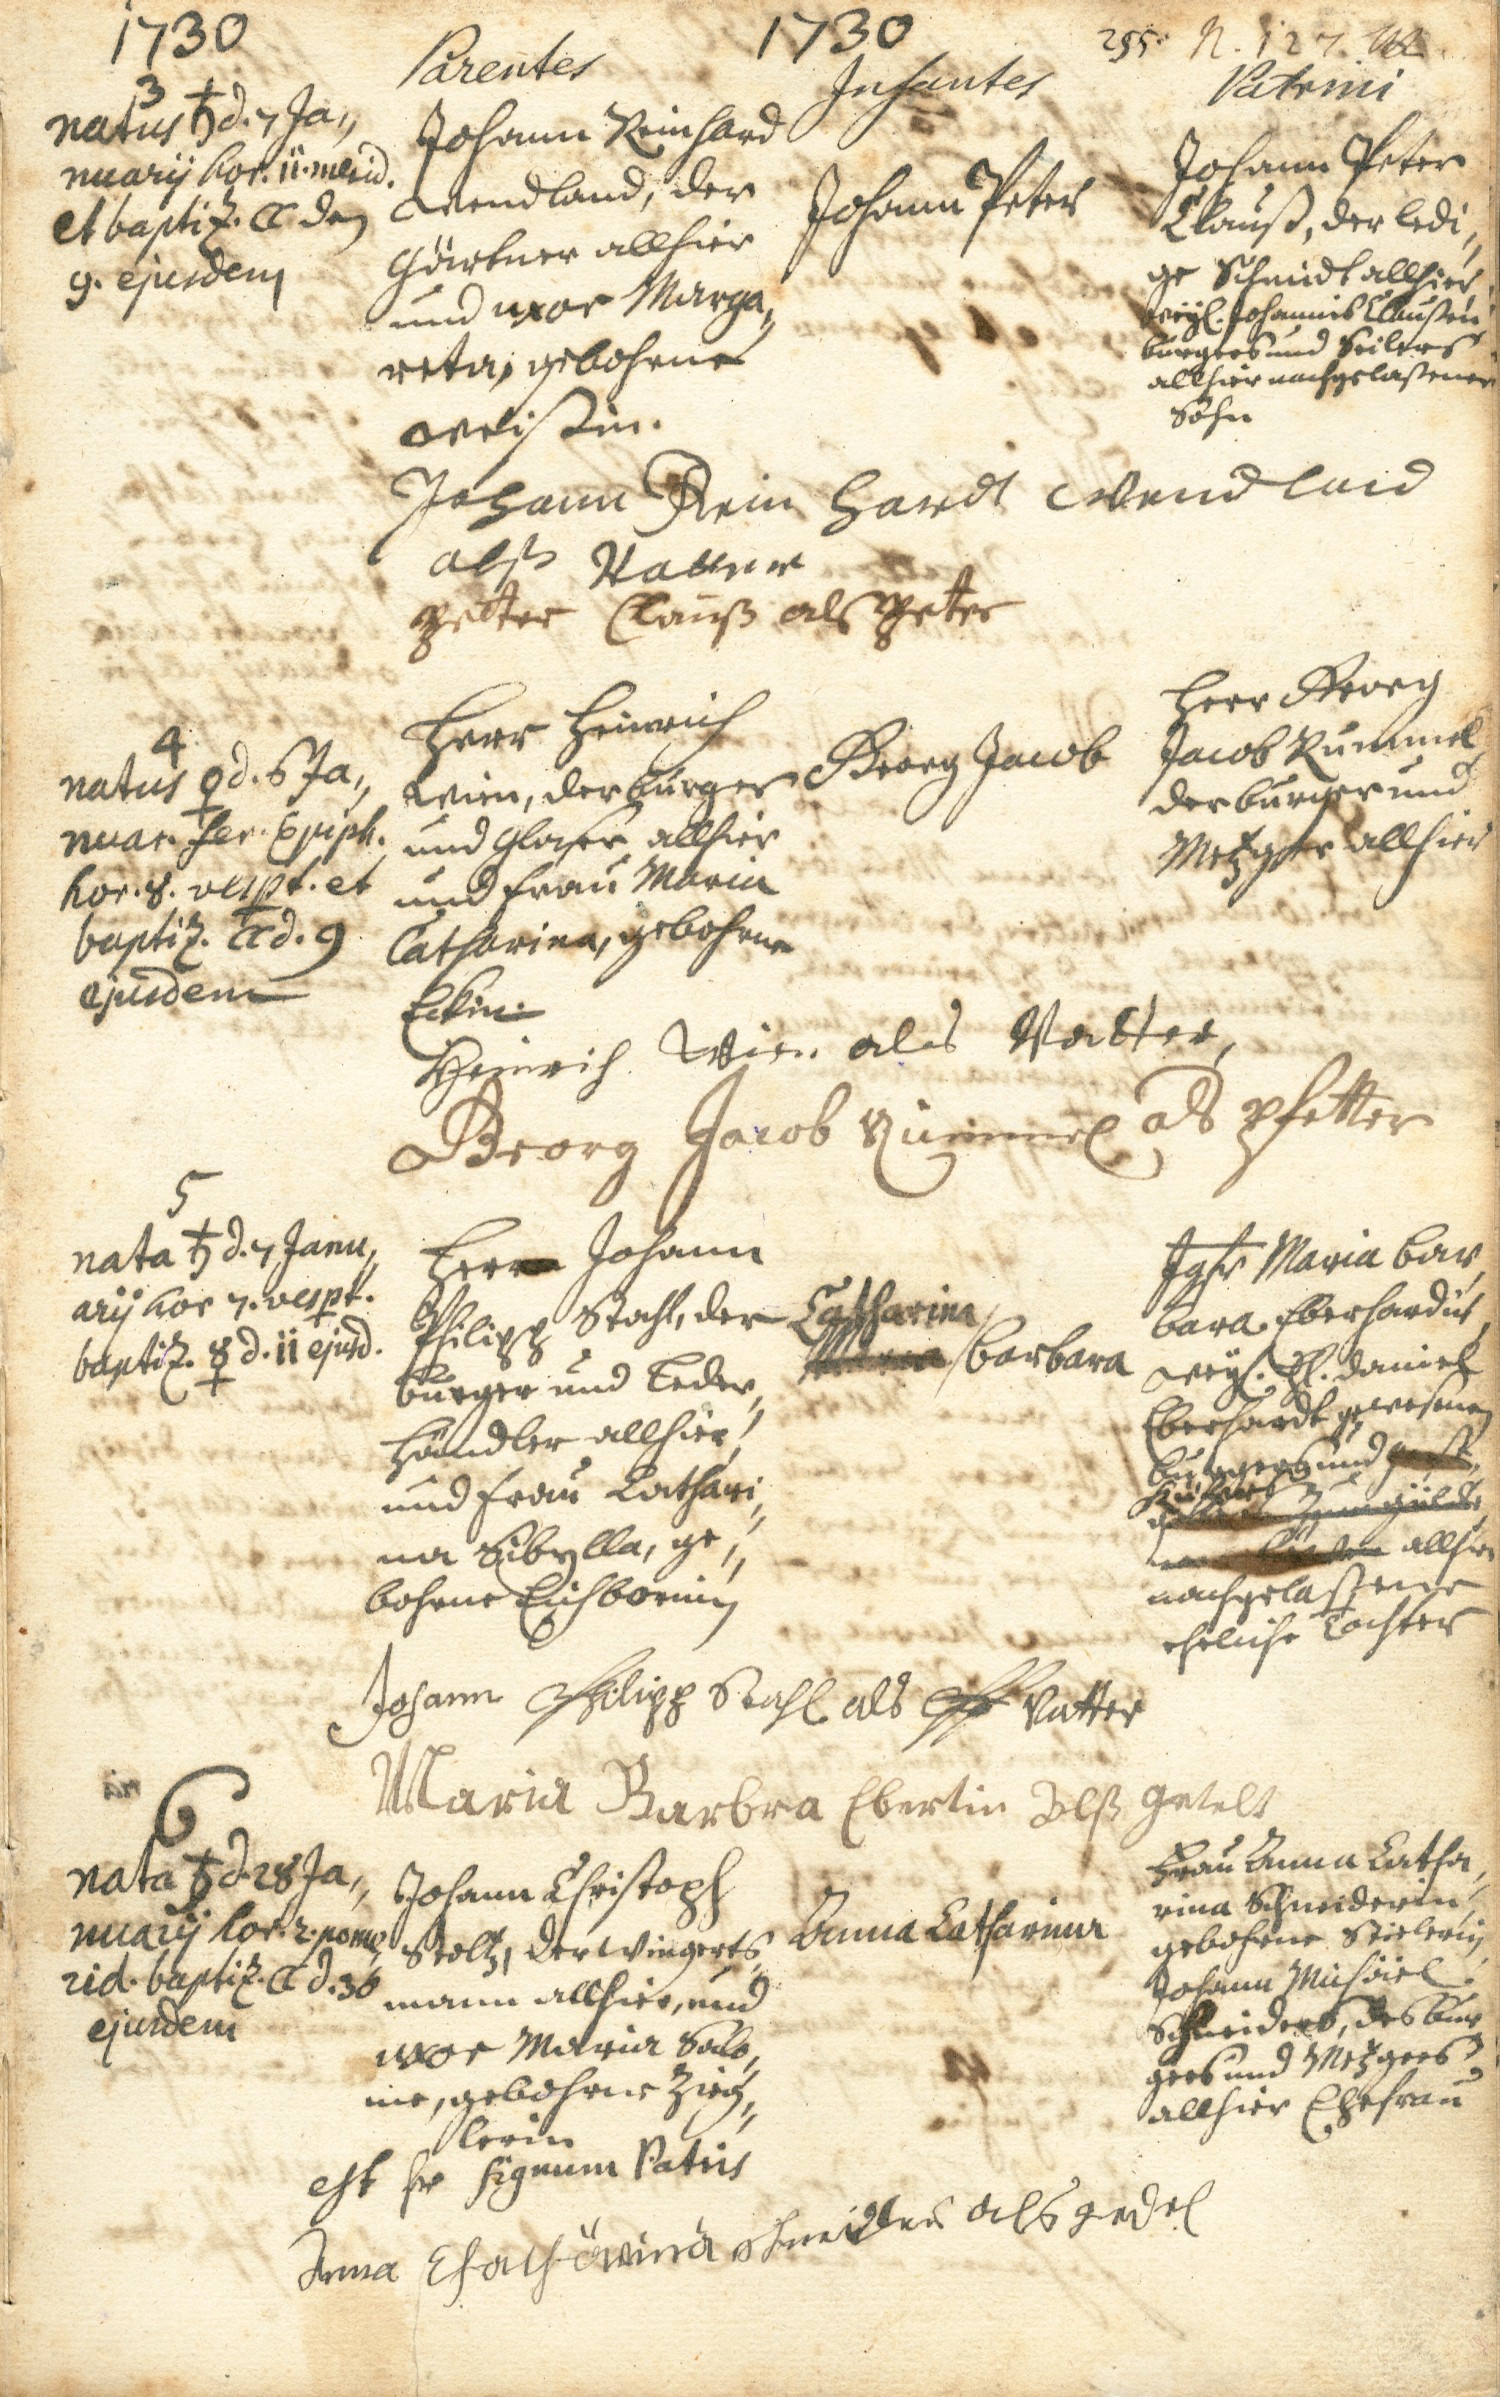 1730
1730
255. N. 127.
Parentes
Infantes
Patrini
3
natus ♄ d. 7 Ja„
nuarij hor. 11. merid.
et baptiz. ☾ den
9. ejusdem
Johann Reinhard
Wendland, der
Gärtner allhier
und uxor Marga„
reta, gebohrne
Weißin.
Johann Peter
Johann Peter
Clauß, der ledi„
ge Schmidt allhier,
weyl. Johannis Claußen
burgers und Seilers
allhier nachgelaßener
Sohn
Johann Rein hardt Wendland
alß Vatter
Petter Clauß als Peter
4
natus ♀ d. 6 Ja„
nuar. fer. Epiph.
hor. 8. vespt. et
baptiz. ☾ d. 9
ejusdem
Herr Heinrich
Wien, der burger
und Glaser allhier
und Frau Maria
Catharina, gebohrne
Eckin.
Georg Jacob
Herr Georg
Jacob Rummel,
der burger und
Metzger allhier
Heinrich Wien als Vatter,
Georg Jacob Rummel als Pfetter
5
nata ♄ d. 7 Janu„
arij hor 7. vespt.
baptiz. ☿ d. 11 ejusd.
Herr Johann
Philipp Stahl, der
burger und Leder„
händler allhier,
und Frau Cathari„
na Sibylla, ge„
bohrne Eichbornin
Catharina
Maria Barbara
Jgfr Maria Bar„
bara Eberhardin,
weyl. H. Daniel
Eberhardt gewesenen
burgers und
allhier
nachgelaßene
eheliche Tochter
Johann Philipp Stahl als Vatter
Maria Barbra Ebertin Alß Getelt
6
nata ♄ d. 28 Ja„
nuarij hor. 2. pome„
rid. baptiz. ☾ d. 30
ejusdem
Johann Christoph
Stoltz, der Wingerts„
mann allhier, und
uxor Maria Salo„
me, gebohrne Zieg„
lerin
Anna Catharina
Frau Anna Catha„
rina Schneiderin,
gebohrne Stielerin
Johann Michäel
Schneiders, des bur„
gers und Metzgers
allhier Ehefrau
est signum Patris
Anna Chathärina schneidern als gedel